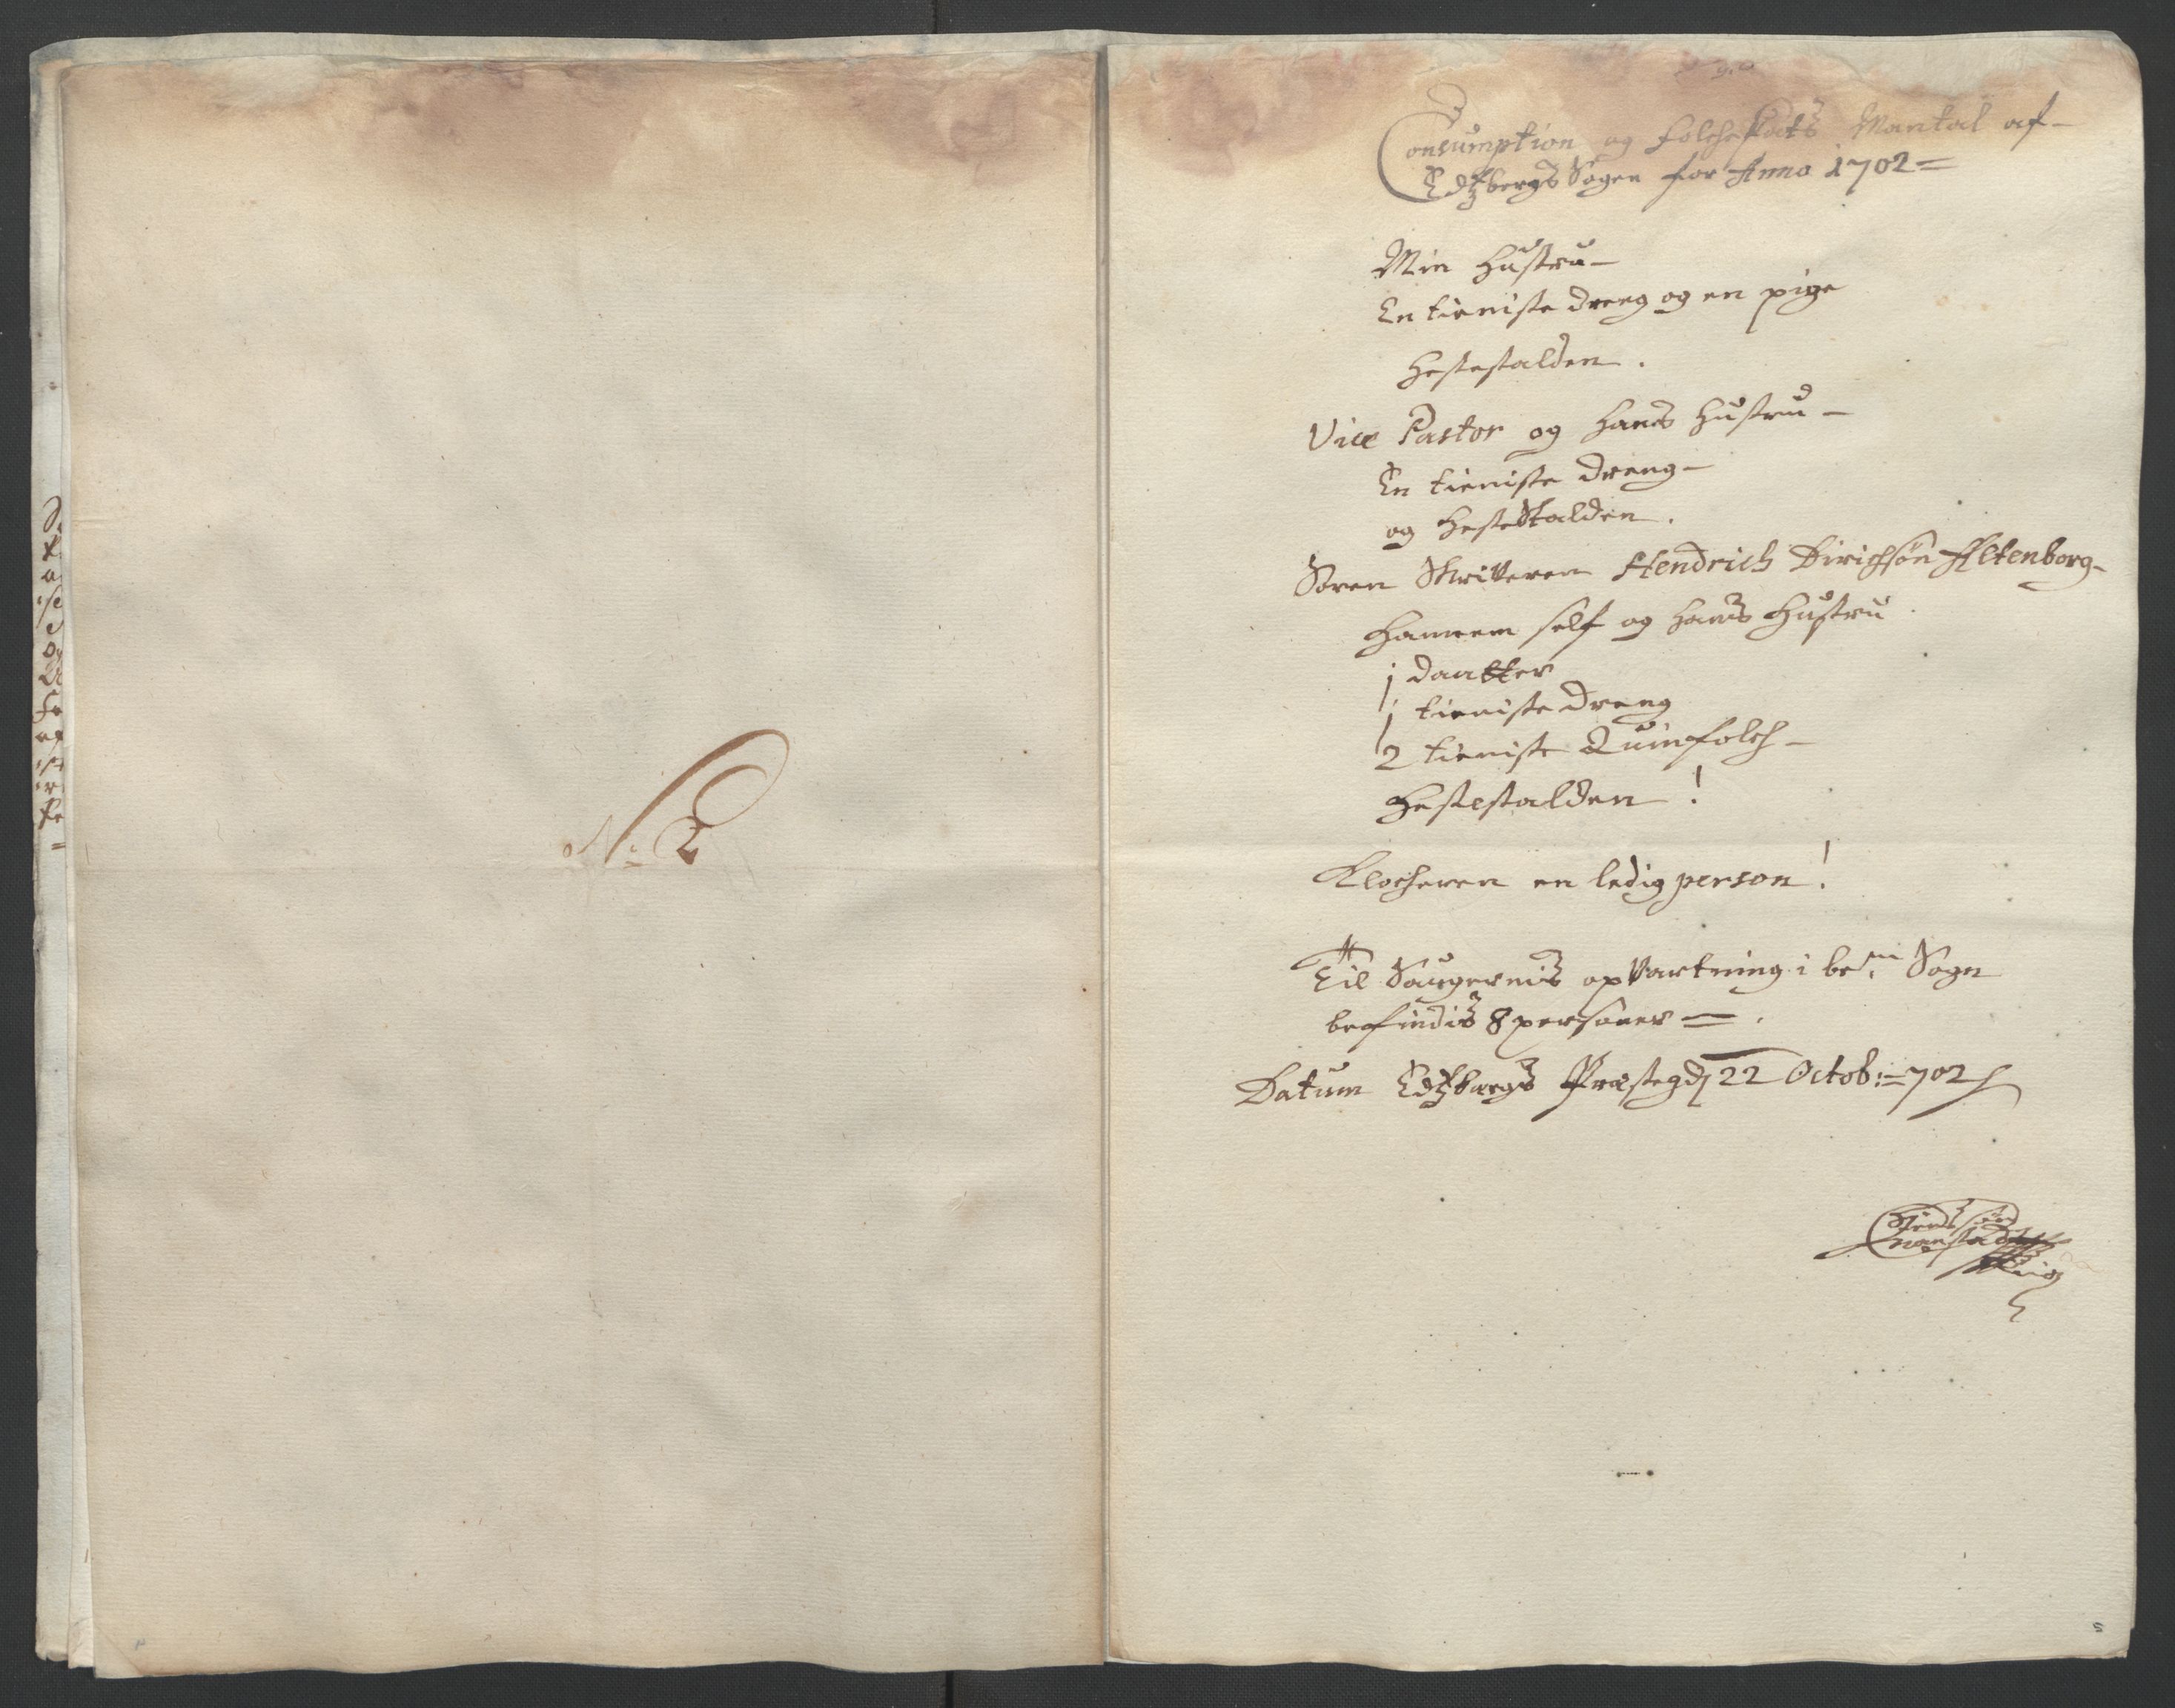 No: 2
Consumption og folcheskats Mantal af
Edtzbergs Sogen for Anno 1702
Min hustru
En tieniste dreng og en pige
hestestalden.
Vice Pastor og hans hustru
En tieniste dreng
og hesteskalden.
Soren Skriveren Hendrich Dirichsøn Altenborg
hannem self og hans hustru
1 daatter
1 tieniste dreng
2 tieniste Quinfolch
hestestalden!
Klocheren en ledig person!
Til Saugernis opvartning i bete: Sogn
befindis 8 personer
Datum Edtzbergs Præstegd 22 Octob: 702